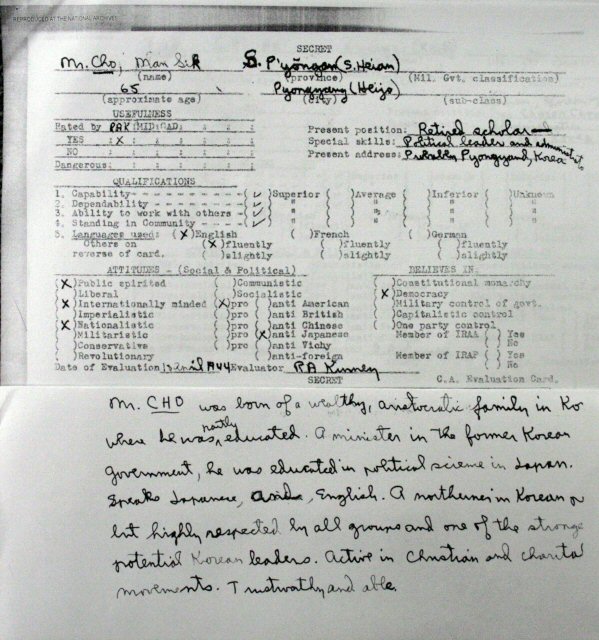 REPRODUCED AT THE NATIONAL ARCHIVES
SECRET
Mr. Cho, Man Sik S. P'yŏngan (S. Heian)
(name) (province) (Mil. Gvt. classification)
65 Pyongyang (Heijo)
(approximate age) (city) (sub-class)
USEFULNESS
Rated by PAK MID GAD
YES X
NO
Dangerous:
Present position: Retired scholar
Special skills: Political leader and administrator
Present address: Probably Pyongyang, Korea
QUALIFICATIONS
1. Capability - (✓) Superior ( ) Average ( ) Inferior ( ) Unknown
2. Dependability - (✓) " ( ) " ( ) " ( ) "
3. Ability to work with others - (✓) " ( ) " ( ) " ( ) "
4. Standing in Community - (✓) " ( ) " ( ) " ( ) "
5. Languages used: (X) English ( ) French ( ) German
Others on (X) fluently ( ) fluently ( ) fluently
reverse of card. ( ) slightly ( ) slightly ( ) slightly
ATTITUDES - (Social & Political) BELIEVES IN:
(X) Public spirited ( ) Communistic ( ) Constitutional monarchy
( ) Liberal ( ) Socialistic (X) Democracy
(X) Internationally minded (X) pro ( ) anti American ( ) Military control of govt.
( ) Imperialistic ( ) pro ( ) anti British ( ) Capitalistic control
(X) Nationalistic ( ) pro ( ) anti Chinese ( ) One party control
( ) Militaristic ( ) pro (X) anti Japanese Member of IRAA ( ) Yes
( ) Conservative ( ) pro ( ) anti Vichy ( ) No
( ) Revolutionary ( ) anti-foreign Member of IRAF ( ) Yes
( ) No
Date of Evaluation Evaluator R A Kinney
SECRET C.A. Evaluation Card.
Mr. CHO was born of a wealthy, aristocratic family in Ko
where he was partly educated. A minister in the former Korean
government, he was educated in political science in Japan.
Speaks Japanese, and English. A northerner in Korean
but highly respected by all groups and one of the strong
potential Korean leaders. Active in Christian and charita
movements. Trustworthy and able.